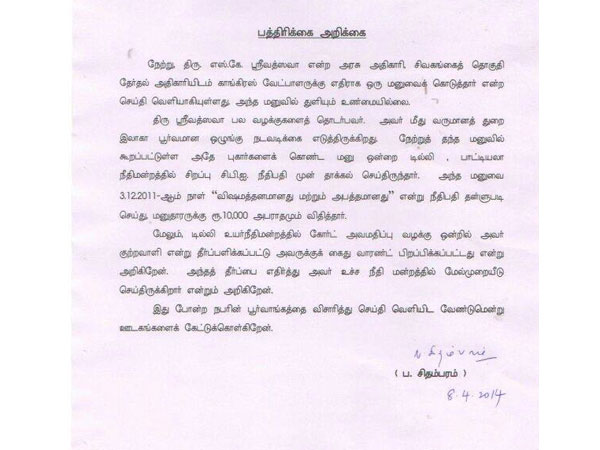 பத்திரிக்கை அறிக்கை
நேற்று, திரு. எஸ்.கே. ஸ்ரீவத்ஸவா என்ற அரசு அதிகாரி, சிவகங்கைத் தொகுதி
தேர்தல் அதிகாரியிடம் காங்கிரஸ் வேட்பாளருக்கு எதிராக ஒரு மனுவைக் கொடுத்தார் என்ற
செய்தி வெளியாகியுள்ளது. அந்த மனுவில் துளியும் உண்மையில்லை.
திரு ஸ்ரீவத்ஸவா பல வழக்குகளைத் தொடர்பவர். அவர் மீது வருமானத் துறை
இலாகா பூர்வமான ஒழுங்கு நடவடிக்கை எடுத்திருக்கிறது. நேற்றுத் தந்த மனுவில்
கூறப்பட்டுள்ள அதே புகார்களைக் கொண்ட மனு ஒன்றை டில்லி , பாட்டியலா
நீதிமன்றத்தில் சிறப்பு சி.பி.ஐ. நீதிபதி முன் தாக்கல் செய்திருந்தார். அந்த மனுவை
3.12.2011-ஆம் நாள் “விஷமத்தனமானது மற்றும் அபத்தமானது” என்று நீதிபதி தள்ளுபடி
செய்து, மனுதாரருக்கு ரூ.10,000 அபராதமும் விதித்தார்.
மேலும், டில்லி உயர்நீதிமன்றத்தில் கோர்ட் அவமதிப்பு வழக்கு ஒன்றில் அவர்
குற்றவாளி என்று தீர்ப்பளிக்கப்பட்டு அவருக்குக் கைது வாரண்ட் பிறப்பிக்கப்பட்டது என்று
அறிகிறேன். அந்தத் தீர்ப்பை எதிர்த்து அவர் உச்ச நீதி மன்றத்தில் மேல்முறையீடு
செய்திருக்கிறார் என்றும் அறிகிறேன்.
இது போன்ற நபரின் பூர்வாங்கத்தை விசாரித்து செய்தி வெளியிட வேண்டுமென்று
ஊடகங்களைக் கேட்டுக்கொள்கிறேன்.
ப சிதம்பரம்
( ப. சிதம்பரம் )
8.4.2014